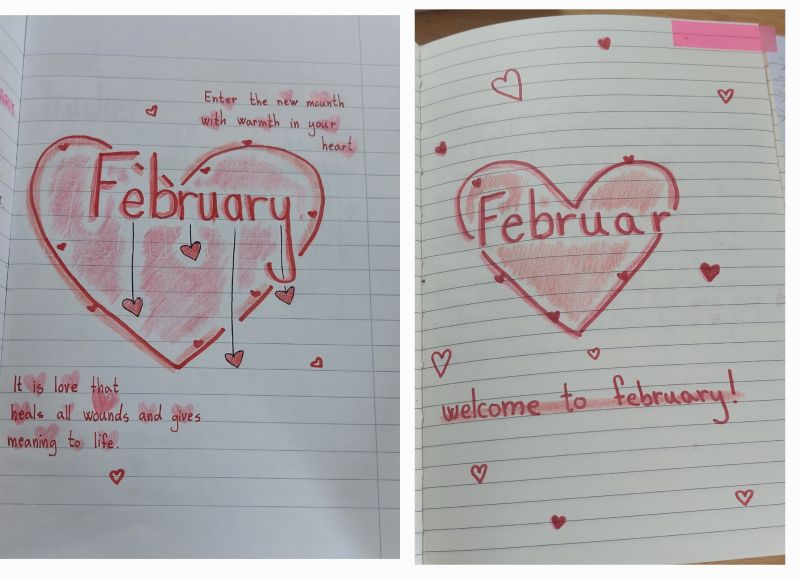 Enter the new mounth
with warmth in your
heart
February
It is love that
heals all wounds and gives
meaning to life.
Februar
welcome to february!